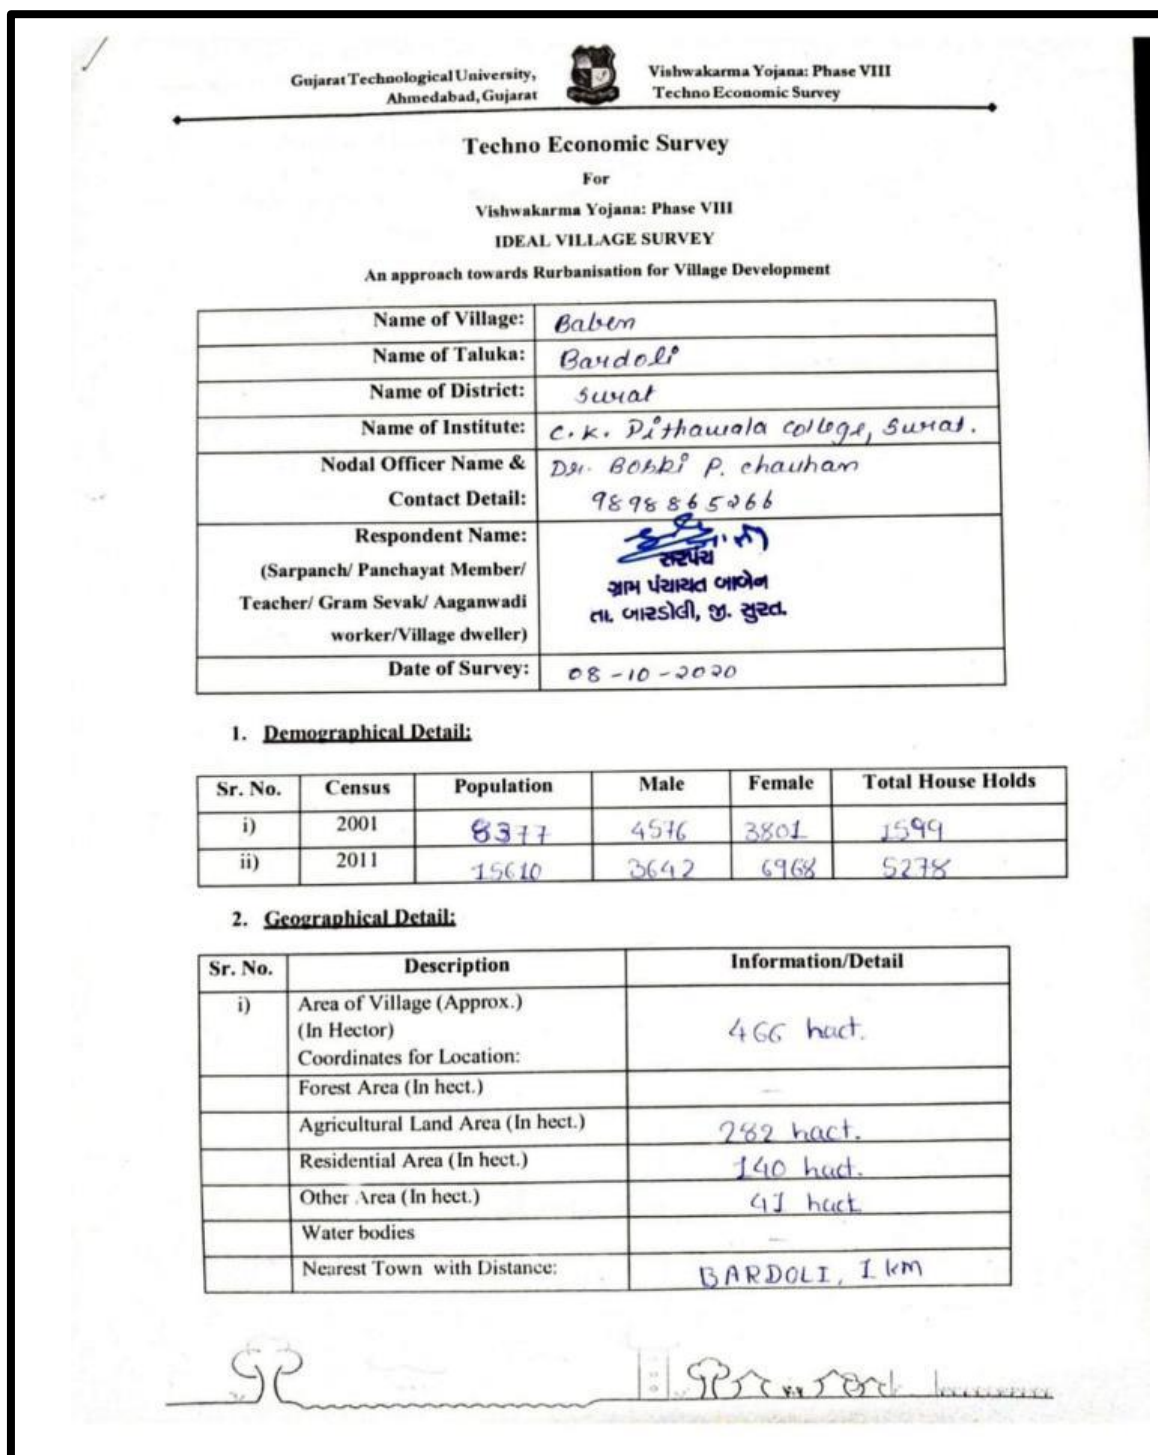 Gujarat Technological University,
Ahmedabad, Gujarat
Vishwakarma Yojana: Phase VIII
Techno Economic Survey
Techno Economic Survey
For
Vishwakarma Yojana: Phase VIII
IDEAL VILLAGE SURVEY
An approach towards Rurbanisation for Village Development
Name of Village: Baben
Name of Taluka: Bardoli
Name of District: Surat
Name of Institute: C.K. Pithawala College, Surat.
Nodal Officer Name & Dr. Bobbi P. chauhan
Contact Detail: 9898865266
Respondent Name:
(Sarpanch/ Panchayat Member/
Teacher/ Gram Sevak/ Aaganwadi
worker/Village dweller)
સરપંચ
ગ્રામ પંચાયત બાબેન
તા. બારડોલી, જી. સુરત.
Date of Survey: 08-10-2020
1. Demographical Detail:
Sr. No. Census Population Male Female Total House Holds
i) 2001 8377 4576 3801 1599
ii) 2011 15610 3642 6968 5278
2. Geographical Detail:
Sr. No. Description Information/Detail
i) Area of Village (Approx.)
(In Hector) 466 hact.
Coordinates for Location:
Forest Area (In hect.) -
Agricultural Land Area (In hect.) 282 hact.
Residential Area (In hect.) 140 hact.
Other Area (In hect.) 41 hact
Water bodies -
Nearest Town with Distance: BARDOLI, 1 km